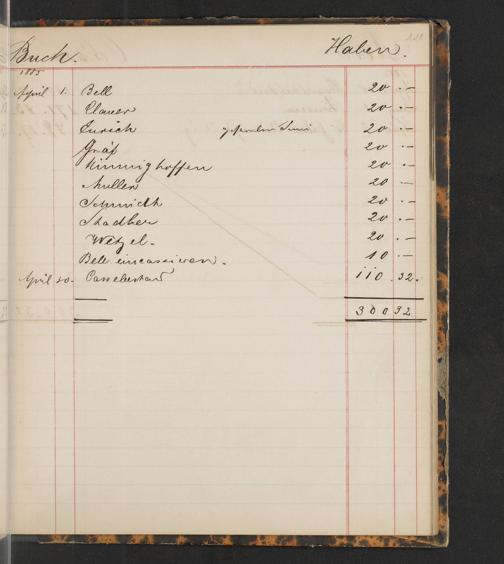 Buch. Haben.
1885
April 1. Bell 20 . —
Clauer 20 . —
Zurich 20 . —
Gräf 20 . —
Hinnighoffen 20 . —
Müller 20 . —
Schmidt 20 . —
Stadber 20 . —
Wetzel. 20 . —
Bell eincassiren. 10 . —
April 20. Cassabestand 110 . 32.
300 32